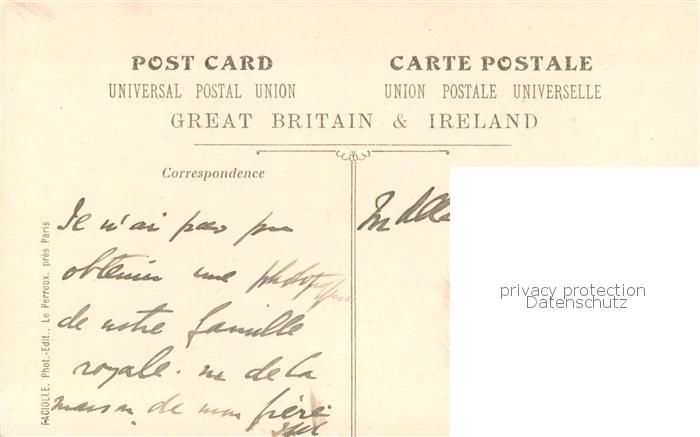 POST CARD CARTE POSTALE
UNIVERSAL POSTAL UNION UNION POSTALE UNIVERSELLE
GREAT BRITAIN & IRELAND
Correspondence
FACIOLLE, Phot.-Edit., Le Perreux, près Paris
Je n'ai pas pu
obtenir une
de votre famille
royale. ni de la
maison de mon frère
privacy protection
Datenschutz